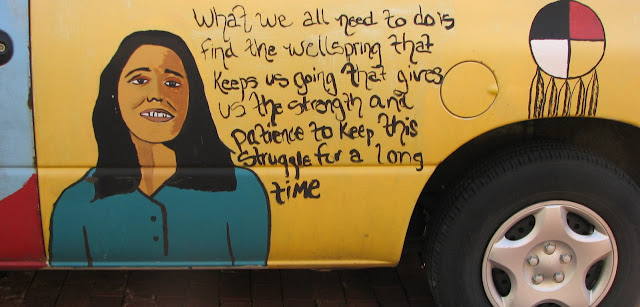 What we all need to do is
find the wellspring that
keeps us going that gives
us the strength and
patience to keep this
struggle for a long
time